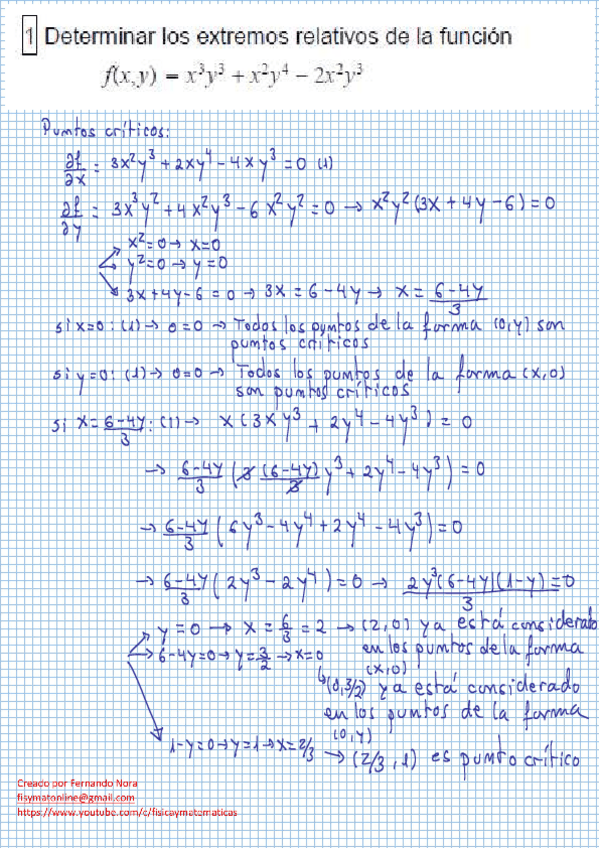 1 Determinar los extremos relativos de la función
f(x,y) = x³y³ + x²y⁴ − 2x²y³
Puntos críticos:
∂f/∂x = 3x²y³ + 2xy⁴ − 4xy³ = 0 (1)
∂f/∂y = 3x³y² + 4x²y³ − 6x²y² = 0 → x²y²(3x + 4y − 6) = 0
x² = 0 → x = 0
y² = 0 → y = 0
3x + 4y − 6 = 0 → 3x = 6 − 4y → x = (6 − 4y)/3
si x = 0: (1) → 0 = 0 → Todos los puntos de la forma (0,y) son
puntos críticos
si y = 0: (1) → 0 = 0 → Todos los puntos de la forma (x,0)
son puntos críticos
si x = (6 − 4y)/3: (1) → x(3xy³ + 2y⁴ − 4y³) = 0
→ (6 − 4y)/3 (3 (6 − 4y)/3 y³ + 2y⁴ − 4y³) = 0
→ (6 − 4y)/3 (6y³ − 4y⁴ + 2y⁴ − 4y³) = 0
→ (6 − 4y)/3 (2y³ − 2y⁴) = 0 → 2y³(6 − 4y)(1 − y)/3 = 0
y = 0 → x = 6/3 = 2 → (2,0) ya está considerado
en los puntos de la forma
(x,0)
6 − 4y = 0 → y = 3/2 → x = 0
↳ (0,3/2) ya está considerado
en los puntos de la forma
(0,y)
1 − y = 0 → y = 1 → x = 2/3 → (2/3, 1) es punto crítico
Creado por Fernando Nora
fisymatonline@gmail.com
https://www.youtube.com/c/fisicaymatematicas